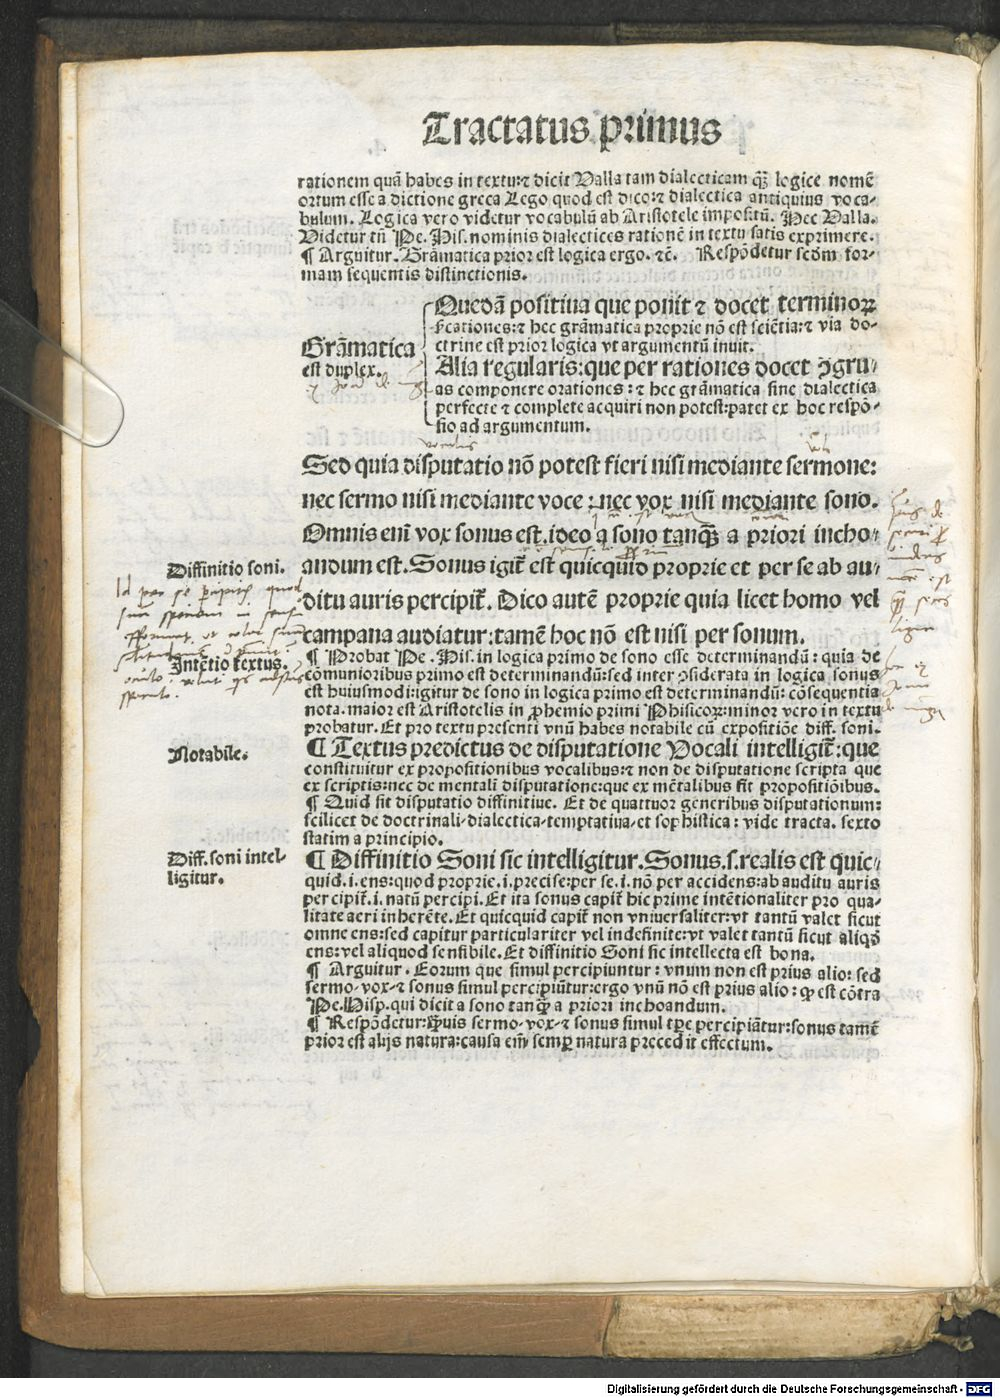 Tractatus primus
rationem quã habes in textu:⁊ dicit Valla tam dialecticam qᷓȝ logice nomẽ
ortum esse a dictione greca Lego quod est dico:⁊ dialectica antiquius voca-
bulum. Logica vero videtur vocabulũ ab Aristotele impositũ. Hec Valla.
Videtur tñ Pe. His. nominis dialectices rationẽ in textu satis exprimere.
¶ Arguitur. Grãmatica prior est logica ergo. ⁊c̃. Respõdetur scdm̃ for-
mam sequentis distinctionis.
Grãmatica
est duplex.
Quedã positiua que ponit ⁊ docet terminoꝝ
sĩcationes:⁊ hec grãmatica proprie nõ est sciẽtia:⁊ via do-
ctrine est prior logica vt argumentũ inuit.
Alia regularis:que per rationes docet ꝯgru-
as componere orationes:⁊ hec grãmatica sine dialectica
perfecte ⁊ complete acquiri non potest:patet ex hoc respõ-
sio ad argumentum.
Sed quia disputatio nõ potest fieri nisi mediante sermone:
nec sermo nisi mediante voce:nec vox nisi mediante sono.
Omnis em̃ vox sonus est.ideo a sono tanqᷓȝ a priori incho-
Diffinitio soni.
andum est.Sonus igit᷑ est quicquid proprie et per se ab au-
ditu auris percipit᷑. Dico autẽ proprie quia licet homo vel
campana audiatur:tamẽ hoc nõ est nisi per sonum.
Intẽtio textus.
¶ Probat Pe. His. in logica primo de sono esse determinandũ: quia de
cõmunioribus primo est determinandũ:sed inter ꝯsiderata in logica sonus
est huiusmodi:igitur de sono in logica primo est determinandũ: cõsequentia
nota. maior est Aristotelis in ꝓhemio primi Phisicoꝝ:minor vero in textu
probatur. Et pro textu presenti vnũ habes notabile cũ expositiõe diff. soni.
Notabile.
¶ Textus predictus de disputatione Vocali intelligit᷑:que
constituitur ex propositionibus vocalibus:⁊ non de disputatione scripta que
ex scriptis:nec de mentali disputatione:que ex mẽtalibus fit propositiõibus.
¶ Quid sit disputatio diffinitiue. Et de quattuor generibus disputationum:
scilicet de doctrinali-dialectica-temptatiua-et sophistica: vide tracta. sexto
statim a principio.
Diff. soni intel-
ligitur.
¶ Diffinitio Soni sic intelligitur.Sonus.s.realis est quic-
quid.i.ens:quod proprie.i.precise:per se.i.nõ per accidens:ab auditu auris
percipit᷑.i.natũ percipi.Et ita sonus capit᷑ hic prime intẽtionaliter pro qua-
litate aeri inherẽte.Et quicquid capit᷑ non vniuersaliter:vt tantũ valet sicut
omne ens:sed capitur particulariter vel indefinite:vt valet tantũ sicut aliqđ
ens:vel aliquod sensibile.Et diffinitio Soni sic intellecta est bona.
¶ Arguitur. Eorum que simul percipiuntur: vnum non est prius alio: sed
sermo-vox-⁊ sonus simul percipiũtur:ergo vnũ nõ est prius alio: qꝫ est cõtra
Pe.Hisp.qui dicit a sono tanqᷓȝ a priori inchoandum.
¶ Respõdetur:qᷓuis sermo-vox-⁊ sonus simul tꝑe percipiãtur:sonus tamẽ
prior est alijs natura:causa em̃ semꝑ natura precedit effectum.
Digitalisierung gefördert durch die Deutsche Forschungsgemeinschaft - DFG